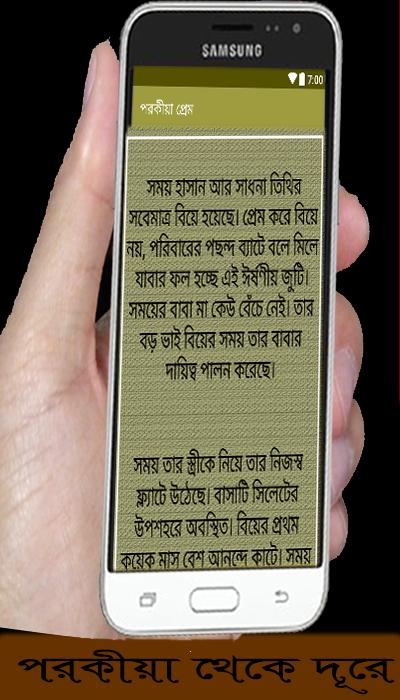 SAMSUNG
7:00
পরকীয়া প্রেম
সময় হাসান আর সাধনা তিথির
সবেমাত্র বিয়ে হয়েছে। প্রেম করে বিয়ে
নয়, পরিবারের পছন্দ ব্যাটে বলে মিলে
যাবার ফল হচ্ছে এই ঈর্ষণীয় জুটি।
সময়ের বাবা মা কেউ বেঁচে নেই। তার
বড় ভাই বিয়ের সময় তার বাবার
দায়িত্ব পালন করেছে।
সময় তার স্ত্রীকে নিয়ে তার নিজস্ব
ফ্ল্যাটে উঠেছে। বাসাটি সিলেটের
উপশহরে অবস্থিত। বিয়ের প্রথম
কয়েক মাস বেশ আনন্দে কাটে। সময়
পরকীয়া থেকে দূরে